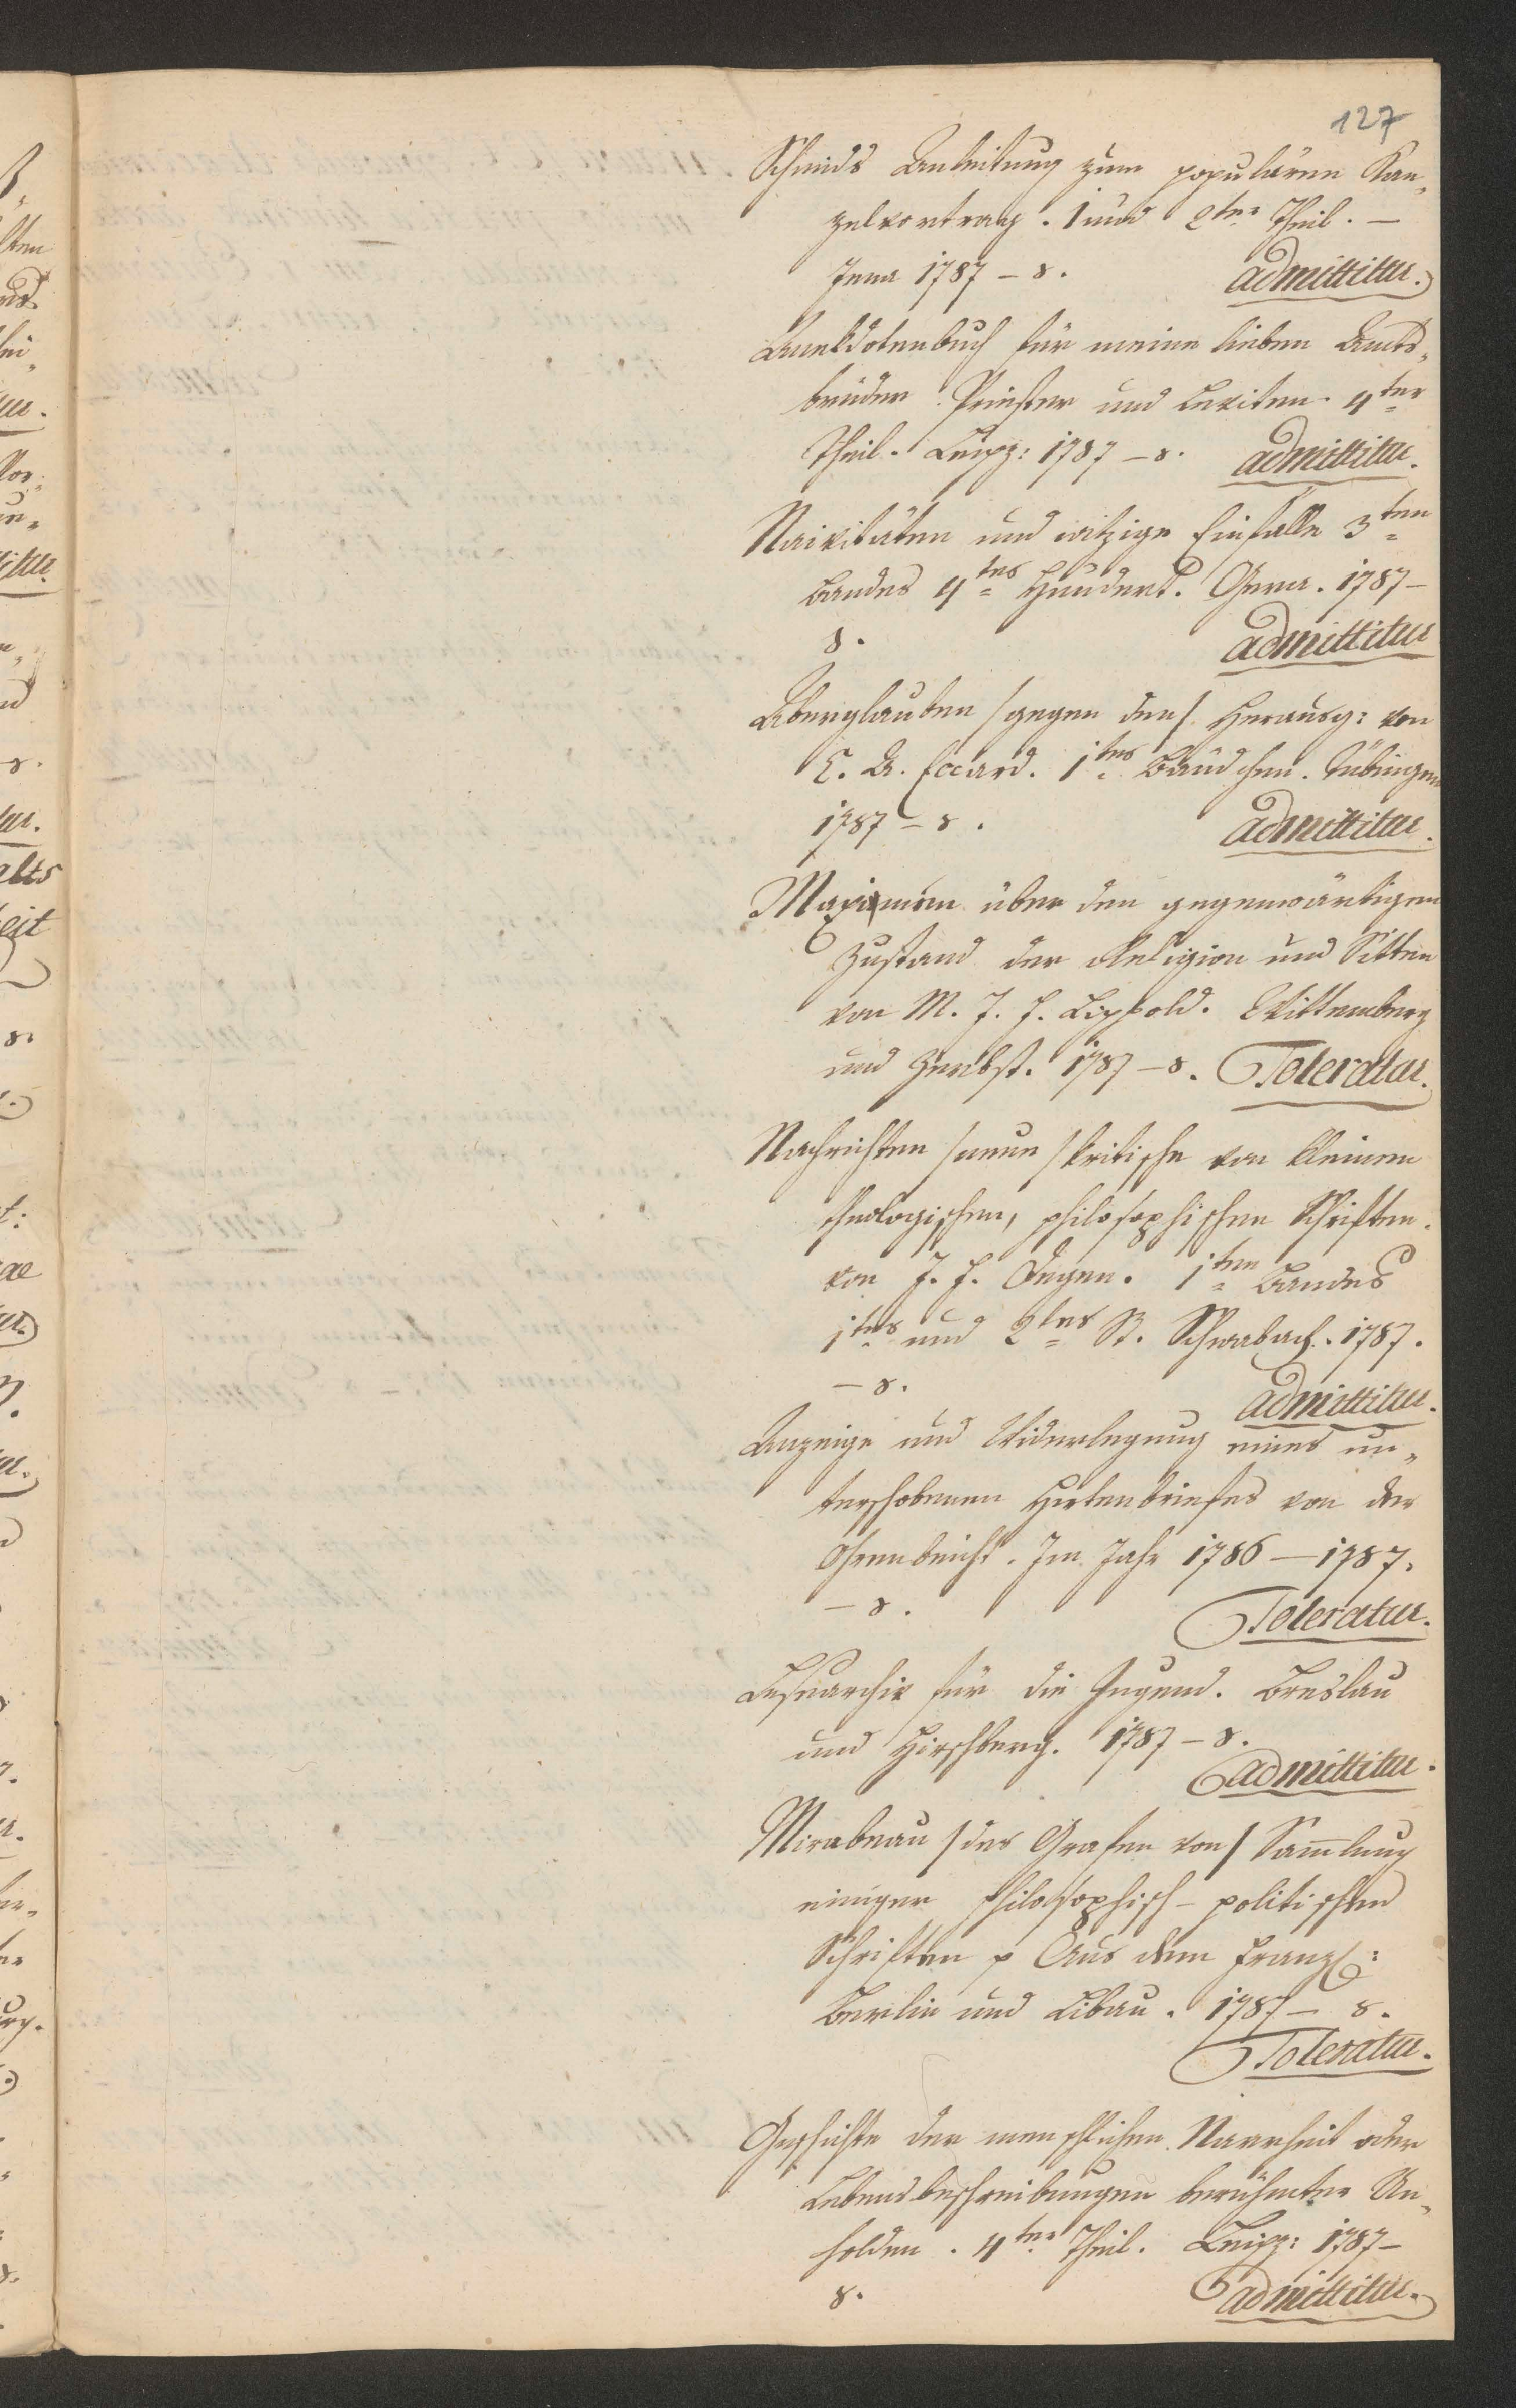 127
Schmids Anleitung zum populären Kan„
zelvortrag. 1 und 2ter Theil. –
Jena 1787 – 8. admittitur.
Anekdotenbuch für meine lieben Amts„
brüder Priester und Leviten. 4ter
Theil. Leipz: 1787 – 8. admittitur.
Naivitäten und witzige Einfälle 3ten
Bandes 4tes Hundert. Gera. 1787 –
8. admittitur
Aberglauben /gegen den/ Herausg: von
E. A. Eccard. 1tes Bändchen. Tübingen
1787 – 8. admittitur.
Maximen über den gegenwärtigen
Zustand der Religion und Sitten
von M. J. F. Lippold. Wittemberg
und Zerbst. 1787 – 8. Toleratur.
Nachrichten /neue/ kritische von kleinen
theologischen, philosophischen Schriften.
von J. F. Degen. 1ten Bandes
1tes und 2tes St. Schwabach. 1787.
– 8. admittitur.
Anzeige und Widerlegung eines un„
terschobenen Hirtenbriefes von der
Ohrenbeicht. Im Jahr 1786 – 1787.
– 8. Toleratur.
Lesearchiv für die Jugend. Breslau
und Hirschberg. 1787 – 8.
admittitur.
Mirabeau /des Grafen von/ Sam̅lung
einiger philosophisch – politischen
Schriften p Aus dem Franz:
Berlin und Libau. 1787 – 8.
Toleratur.
Geschichte der menschlichen Narrheit oder
Lebensbeschreibungen berühmter Un„
holden. 4ter Theil. Leipz: 1787 –
8. admittitur.